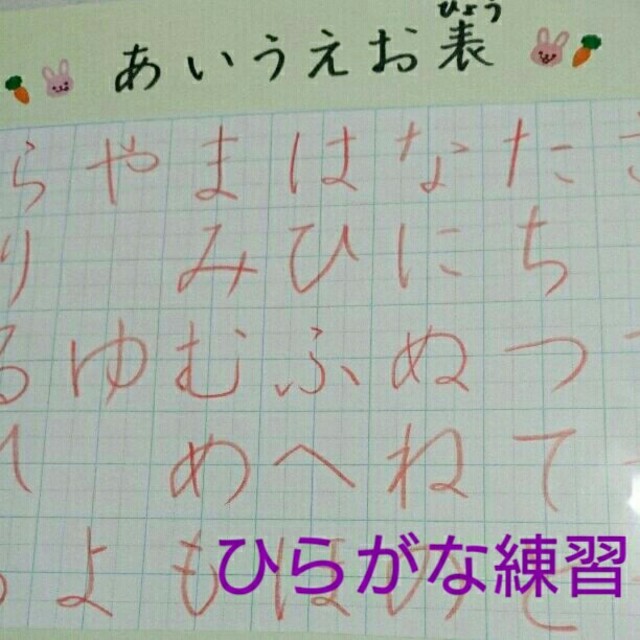 ひょう
あいうえお表
らやまはなたさ
りみひにち
るゆむふぬつ
れめへねて
よもほのと
ひらがな練習